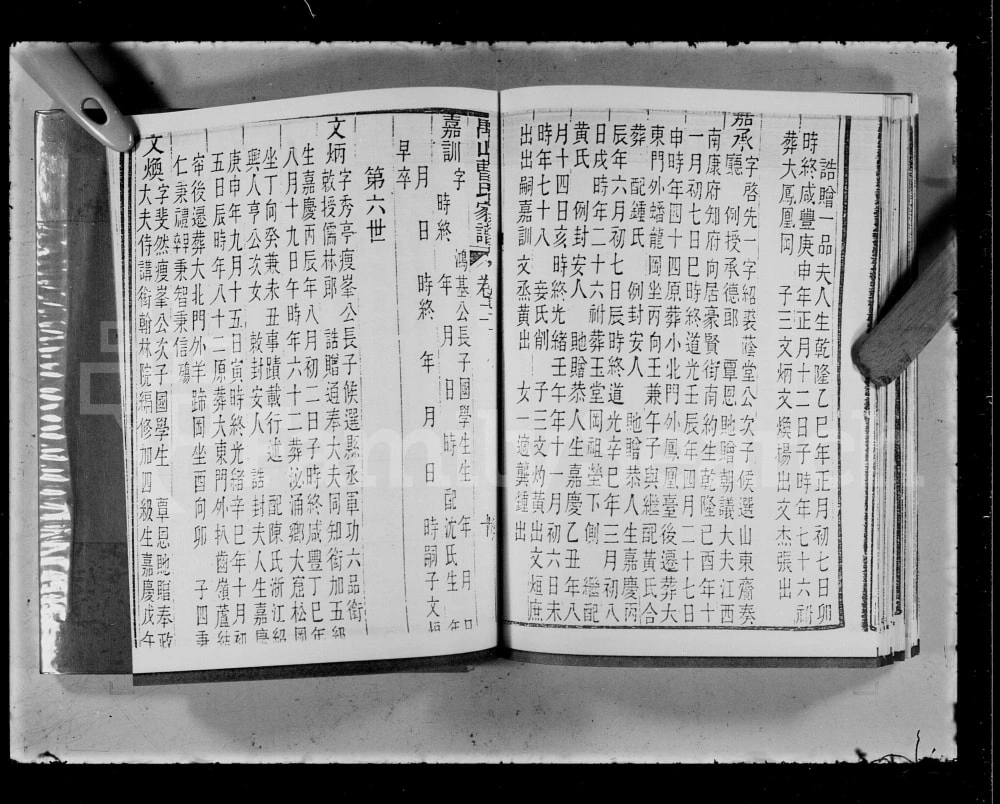 誥贈一品夫人生乾隆乙巳年正月初七日卯
時終咸豐庚申年正月十二日子時年七十六祔
葬大鳳凰岡 子三文炳文煥楊出文杰張出
嘉承字啓先一字紹裘蔭堂公次子候選山東齋奏
廳 例授承德郎 覃恩貤贈朝議大夫江西
南康府知府向居豪賢街南約生乾隆己酉年十
一月初七日巳時終道光壬辰年四月二十七日
申時年四十四原葬小北門外鳳凰臺後遷葬大
東門外蟠龍岡坐丙向壬兼午子與繼配黃氏合
葬 配鍾氏 例封安人 貤贈恭人生嘉慶丙
辰年六月初七日辰時終道光辛巳年三月初八
日戌時年二十六祔葬玉堂岡祖塋下側 繼配
黃氏 例封安人 貤贈恭人生嘉慶乙丑年八
月十四日亥時終光緒壬午年十一月初六日未
時年七十八 妾氏削 子三文灼黃出文烜庶
出出嗣嘉訓文丞黃出 女一適龔鍾出
家譜 卷
嘉訓字 鴻基公長子國學生生 年 月 日
時終 年 月 日 時 配沈氏生 年
月 日 時終 年 月 日 時嗣子文烜
早卒
第六世
文炳字秀亭瘦峯公長子候選縣丞軍功六品銜
敕授儒林郎 誥贈通奉大夫同知銜加五級
生嘉慶丙辰年八月初二日子時終咸豐丁巳年
八月十九日午時年六十二葬泌涌鄉大窩松園
坐丁向癸兼未丑事蹟載行述 配陳氏浙江紹
興人亨公次女 敕封安人 誥封夫人生嘉慶
庚申年九月十五日寅時終光緒辛巳年十月初
五日辰時年八十二原葬大東門外扒齒嶺蘆結
窂後遷葬大北門外羊蹄岡坐酉向卯 子四秉
仁秉禮辥秉智秉信瑒
文煥字斐然瘦峯公次子國學生 覃恩貤贈奉政
大夫侍講銜翰林院編修加四級生嘉慶戊午